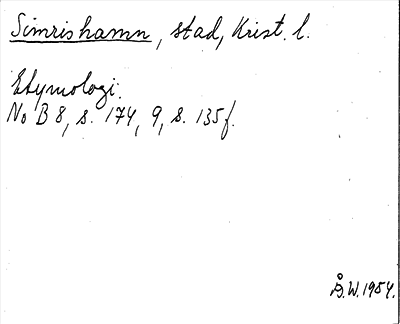 Simrishamn, stad, Krist. l.
Etymologi.
No B 8, s. 174, 9, s. 135f.
Å.W. 1954.